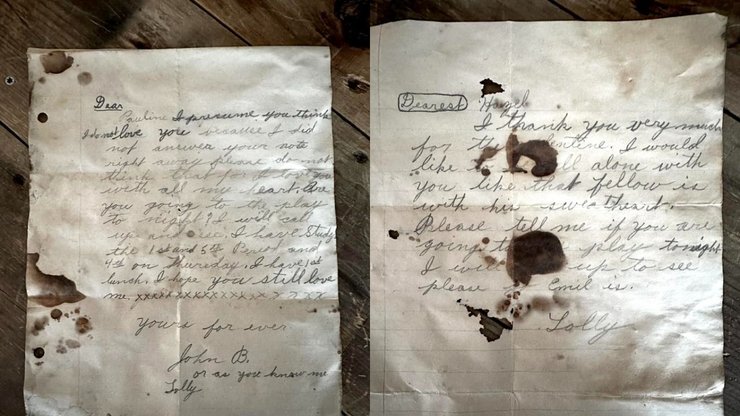 Dear
Pauline I presume you think
I do not love you because I did
not answer your note
right away please do not
think that for I love you
with all my heart. Are
you going to the play
to night? I will call
up and see. I have Study
the 1st and 5th Period and
4th on Thursday. I have 1st
lunch. I hope you still love
me. xxxxxxxxxxxxxxx
Yours for ever
John B.
or as you know me
Lolly
Dearest Hazel
I thank you very much
for the
I would
like
all alone with
you like that fellow is
with his sweetheart.
Please tell me if you are
going to play tonight
I will up to see
please Emil is.
Lolly